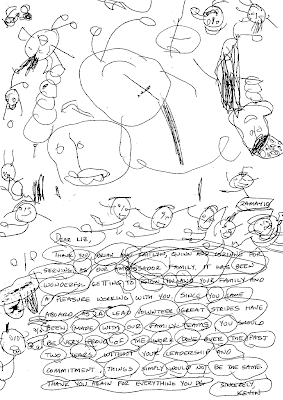 DEAR LIZ,
THANK YOU BRIAN AND CAITLIN, QUINN AND CORINNE FOR
SERVING AS OUR AMBASSADOR FAMILY. IT HAS BEEN
WONDERFUL GETTING TO KNOW YOU AND YOUR FAMILY AND
A PLEASURE WORKING WITH YOU. SINCE YOU CAME
ABOARD AS LEAD VOLUNTEER GREAT STRIDES HAVE
BEEN MADE WITH OUR FAMILY TEAMS. YOU SHOULD
BE VERY PROUD OF THE WORK DONE OVER THE PAST
TWO YEARS. WITHOUT YOUR LEADERSHIP AND
COMMITMENT, THINGS SIMPLY WOULD NOT BE THE SAME.
THANK YOU AGAIN FOR EVERYTHING YOU DO!
SINCERELY,
KEVIN